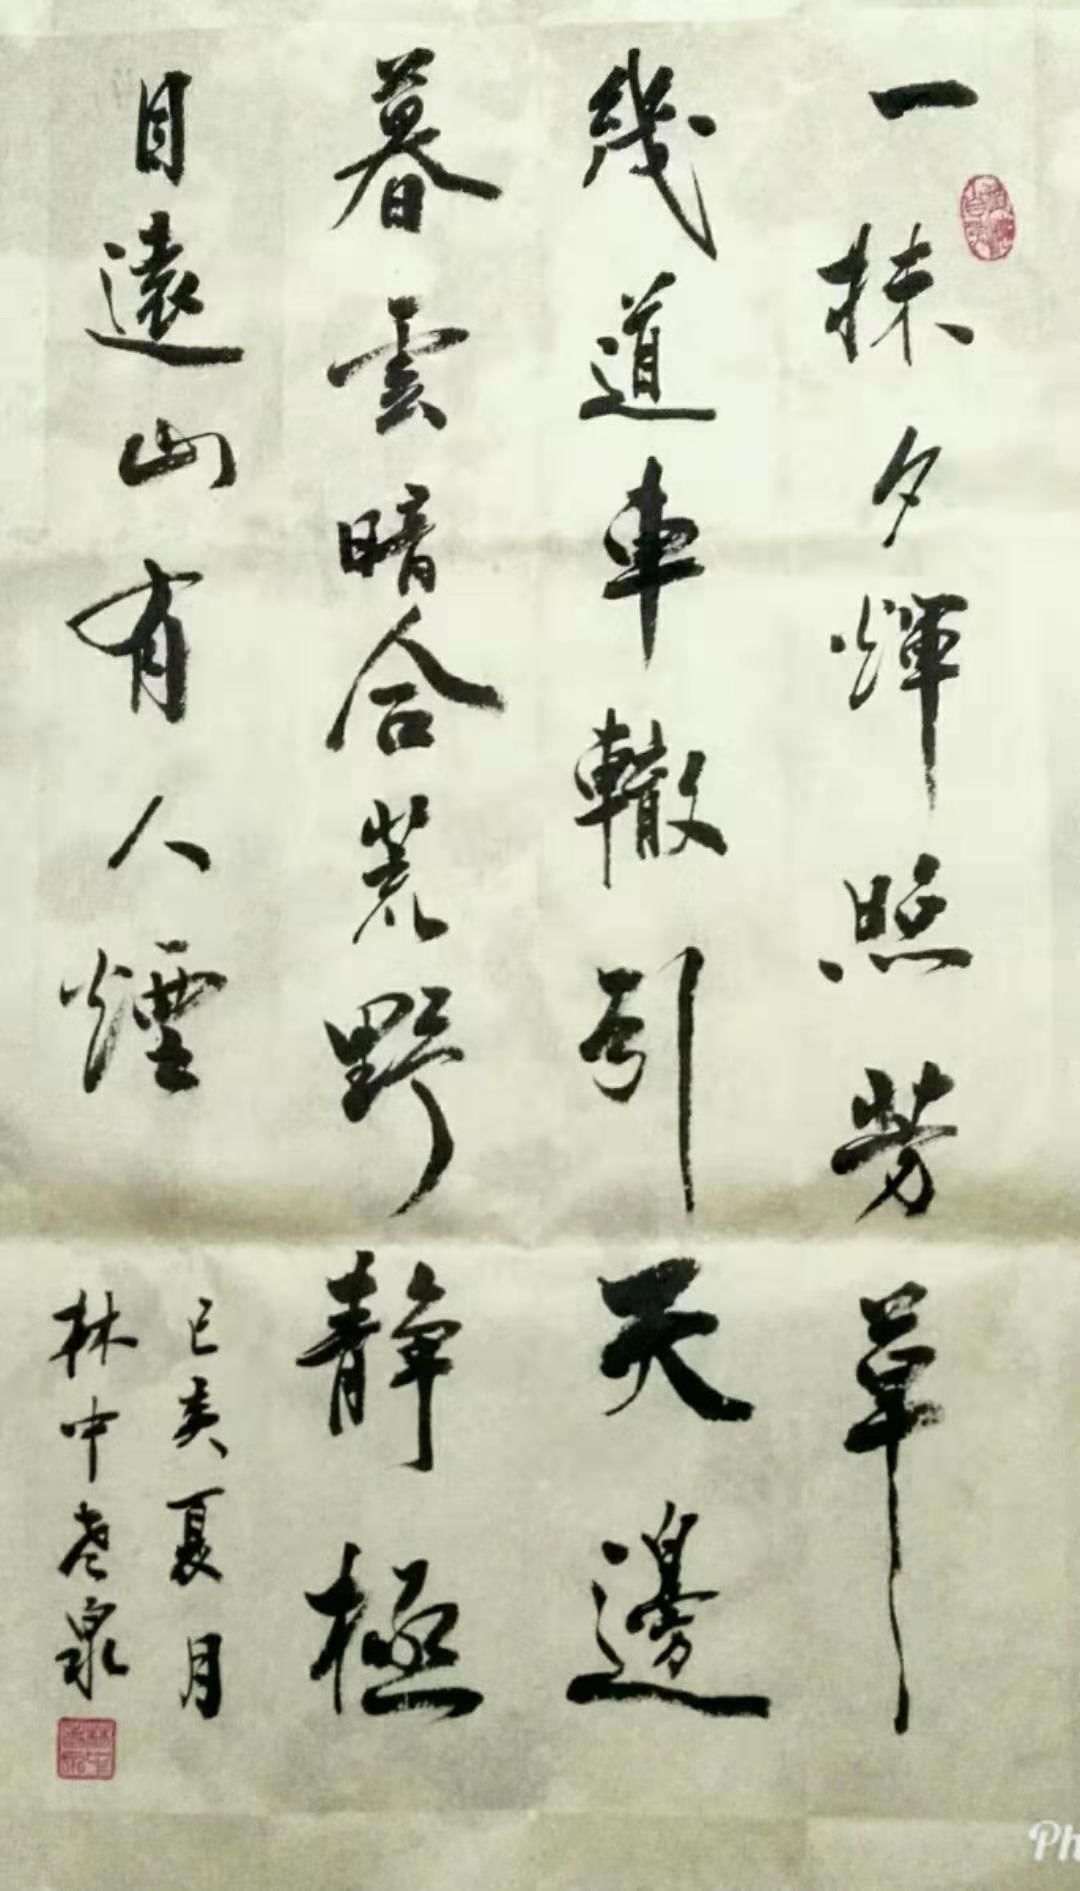 一抹夕輝照芳草
幾道車轍引天邊
暮雲暗合荒野靜極
目遠山有人煙
己亥夏月
林中老泉
Ph